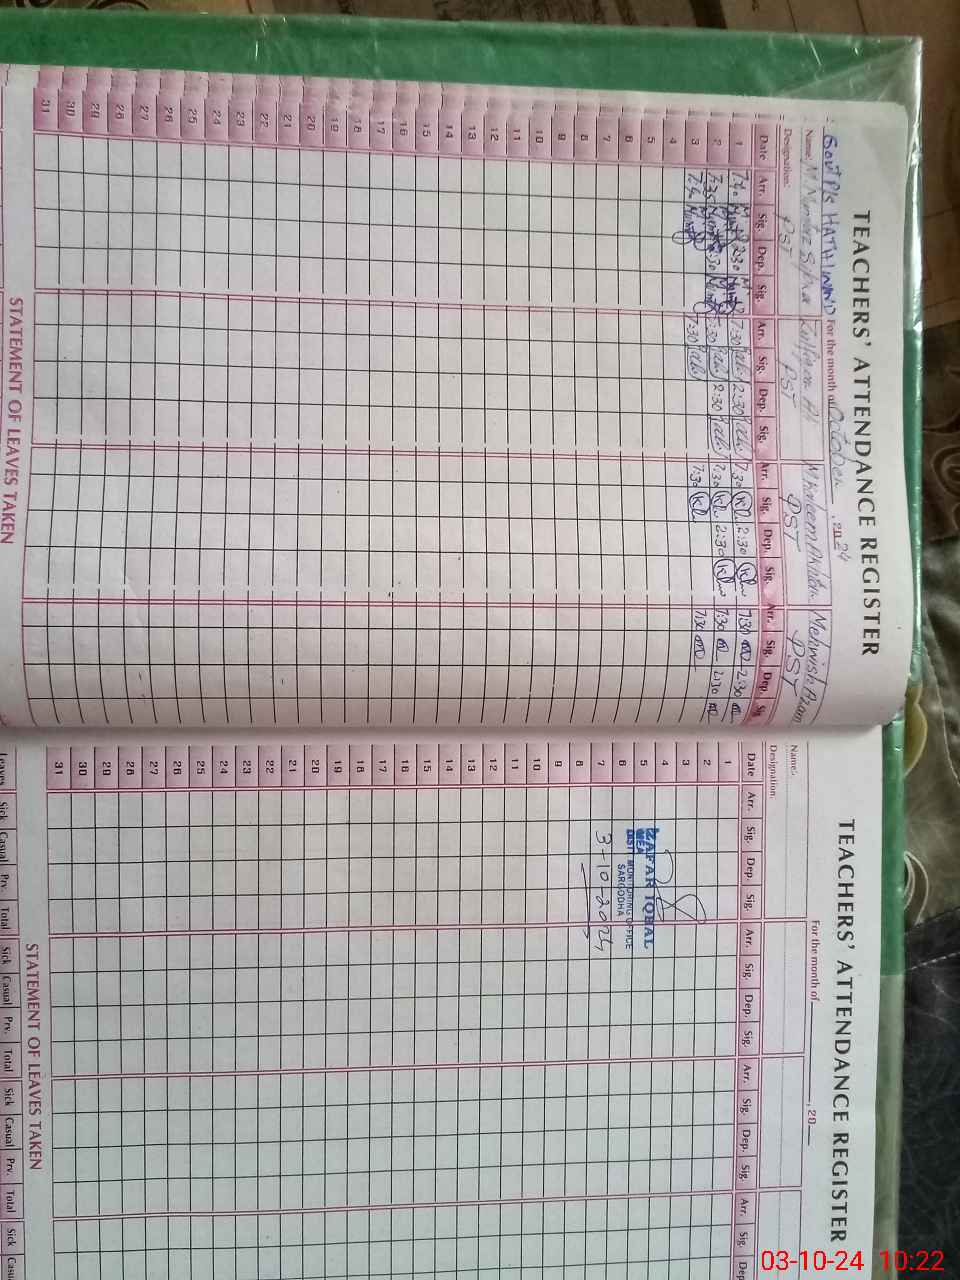 TEACHERS' ATTENDANCE REGISTER
Govt P/S HATHIWIND For the month of October, 2024
Name: M Mumtaz Zulfiqar Ali M Kaleem Mehwish Azam
Designation: PST PST PST PST
Date Arr. Sig. Dep. Sig. Arr. Sig. Dep. Sig. Arr. Sig. Dep. Sig. Arr. Sig. Dep. Sig.
1 7:40 2:30 7:30 2:30 7:30 2:30 7:30 2:30
2 7:35 2:30 7:30 2:30 7:30 2:30 7:30 2:30
3 7:40 7:30 7:30 7:30
4
5
6
7
8
9
10
11
12
13
14
15
16
17
18
19
20
21
22
23
24
25
26
27
28
29
30
31
STATEMENT OF LEAVES TAKEN
TEACHERS' ATTENDANCE REGISTER
For the month of , 20
Name:
Designation.
Date Arr. Sig. Dep. Sig. Arr. Sig. Dep. Sig. Arr. Sig. Dep. Sig. Arr. Sig. Dep
1
2
3
4
5
6
7
8
9
10
11
12
13
14
15
16
17
18
19
20
21
22
23
24
25
26
27
28
29
30
31
ZAFAR IQBAL
MEA
DISTT MONITORING OFFICE
SARGODHA
3-10-2024
STATEMENT OF LEAVES TAKEN
Leaves Sick Casual Prv. Total Sick Casual Prv. Total Sick Casual Prv. Total Sick Casu
03-10-24 10:22